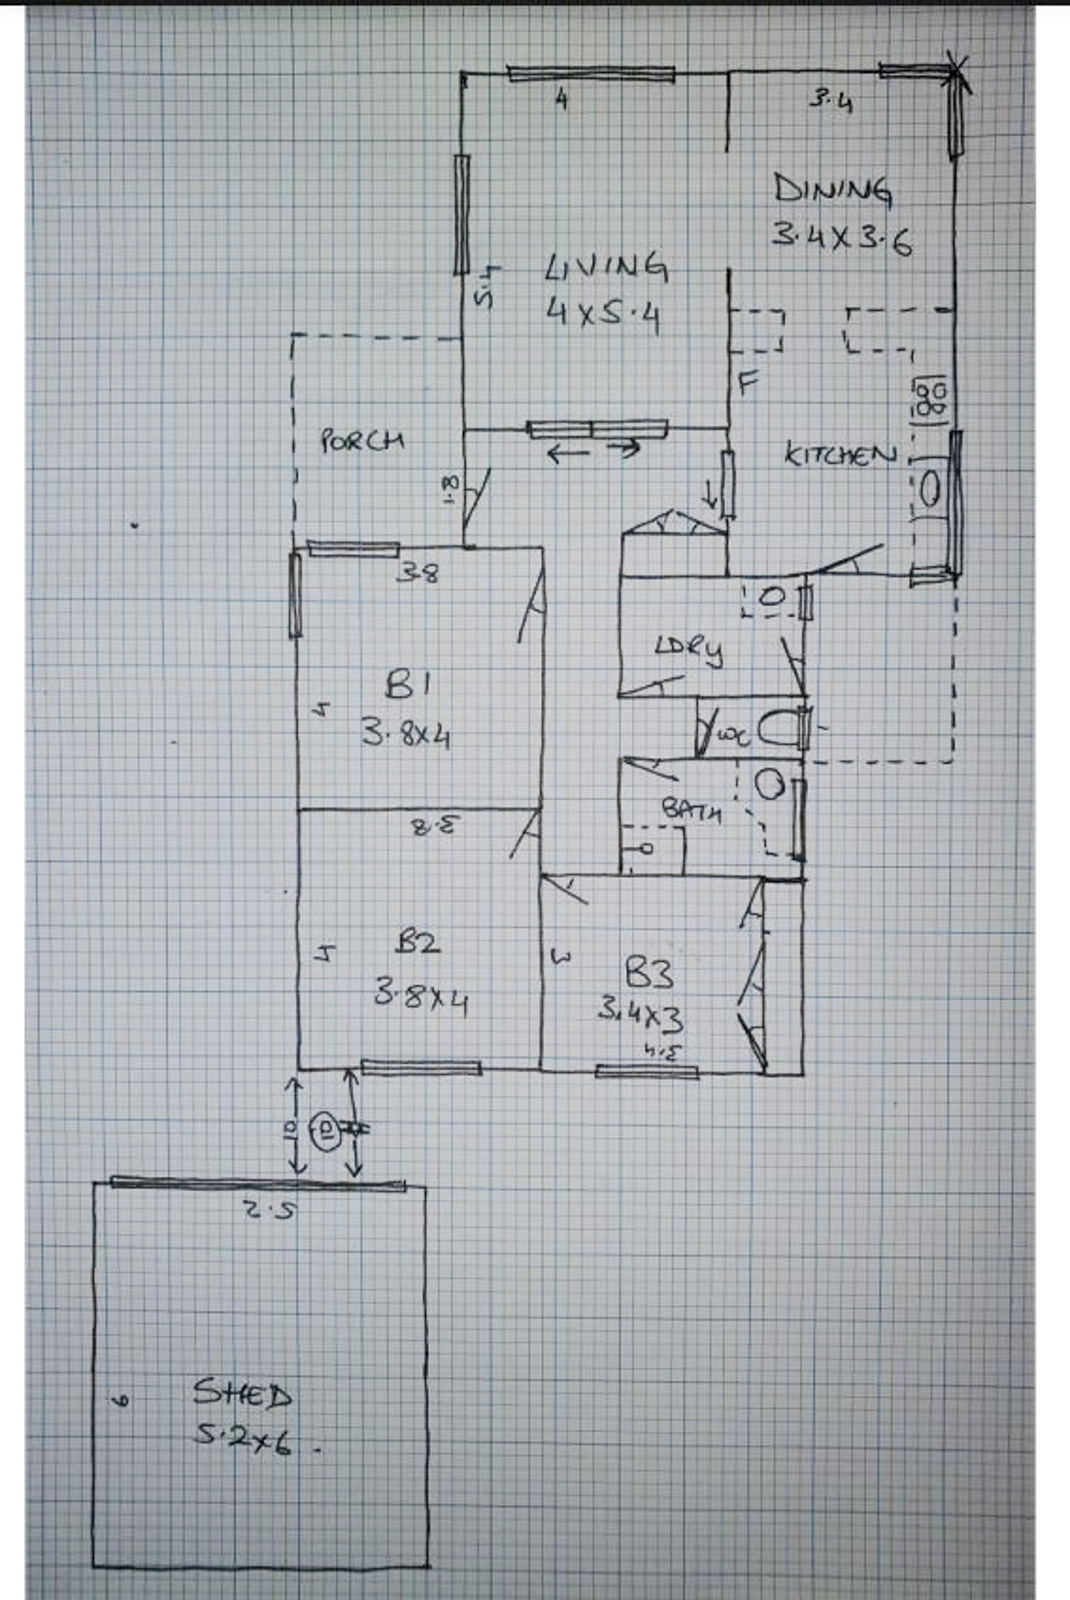 4
3.4
DINING
3.4X3.6
LIVING
4X5.4
5.4
F
PORCH
KITCHEN
1.8
3.8
LDRY
B1
3.8X4
4
WC
BATH
3.8
B2
3.8X4
4
3
B3
3.4X3
3.4
10
10
5.2
SHED
5.2x6
6